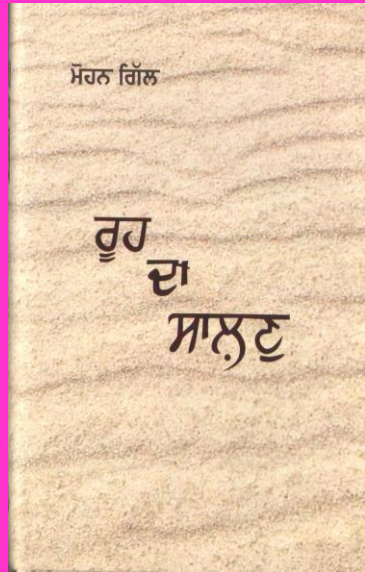 ਮੋਹਨ ਗਿੱਲ
ਰੂਹ
ਦਾ
ਸਾਲ਼ਣੁ